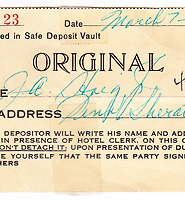 23 Date March 7-
ed in Safe Deposit Vault
ORIGINAL
E J.A. 4
ADDRESS
DEPOSITOR WILL WRITE HIS NAME AND ADD
IN PRESENCE OF HOTEL CLERK. ON THIS C
ON'T DETACH IT. UPON PRESENTATION OF DU
E YOURSELF THAT THE SAME PARTY SIGNE
HERS